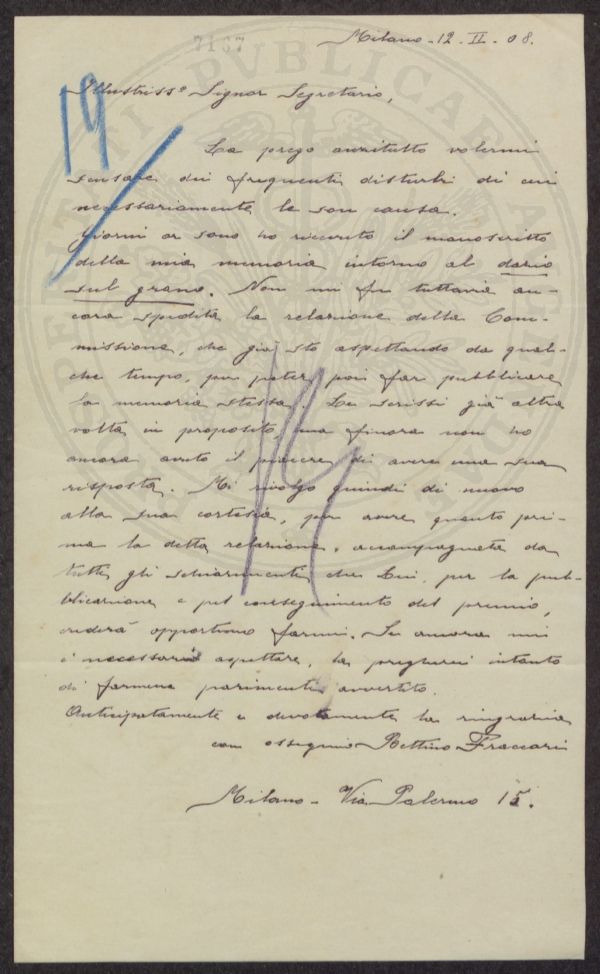 7137
Milano - 12 - II - 08.
19
Illustriss.º Signor Segretario,
La prego anzitutto volermi
scusare dei frequenti disturbi di cui
necessariamente le son causa.
Giorni or sono ho ricevuto il manoscritto
della mia memoria intorno al dazio
sul grano. Non mi fu tuttavia an-
cora spedita la relazione della Com-
missione, che già sto aspettando da qual-
che tempo, per poter poi far pubblicare
la memoria stessa. Le scrissi già altra
volta in proposito, ma finora non ho
ancora avuto il piacere di avere una sua
risposta. Mi rivolgo quindi di nuovo
alla sua cortesia, per avere quanto pri-
ma la detta relazione, accompagnata da
tutti gli schiarimenti che Lei, per la pub-
blicazione e pel conseguimento del premio,
crederà opportuno farmi. Se ancora mi
è necessario aspettare, la pregherei intanto
di farmene parimenti avvertito.
Anticipatamente e devotamente la ringrazia
con ossequio Bettino Fraccari
Milano - Via Palermo 15.